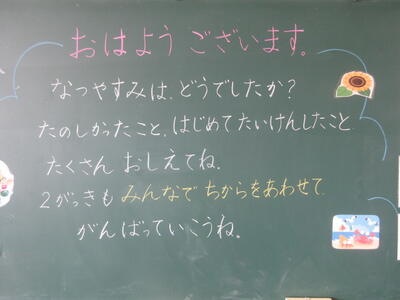 おはようございます。
なつやすみは、どうでしたか？
たのしかったこと、はじめてたいけんしたこと
たくさん おしえてね。
2がっきも みんなで ちからをあわせて
がんばっていこうね。